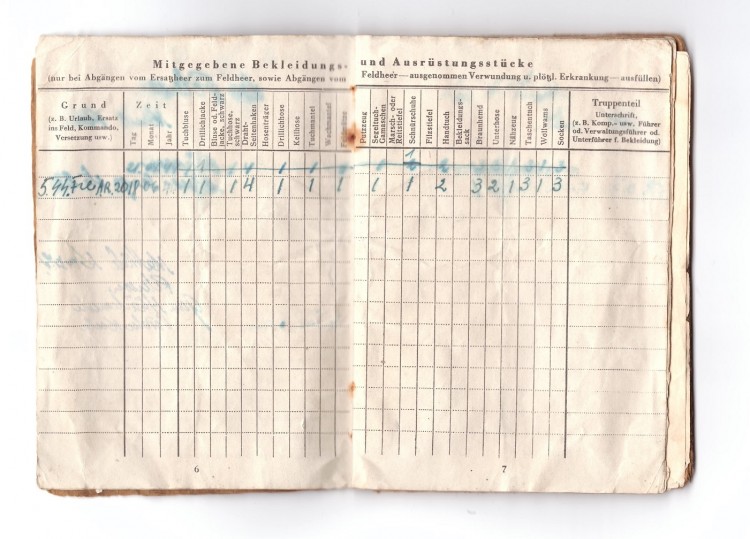 Mitgegebene Bekleidungs- und Ausrüstungsstücke
(nur bei Abgängen vom Ersatzheer zum Feldheer, sowie Abgängen vom Feldheer — ausgenommen Verwundung u. plötzl. Erkrankung — ausfüllen)
Grund
(z. B. Urlaub, Ersatz
ins Feld, Kommando,
Versetzung usw.)
Zeit
Tag
Monat
Jahr
Tuchbluse
Drillichjacke
Bluse od. Feld-
jacke, schwarz
Tuchhose,
schwarz
Draht-
Seitenhaken
Hosenträger
Drillichhose
Keilhose
Tuchmantel
Wachmantel
Putzzeug
Segeltuch-
Gamaschen
Marsch- oder
Reitstiefel
Schnürschuhe
Filzstiefel
Handtuch
Bekleidungs-
sack
Braunhemd
Unterhose
Nähzeug
Taschentuch
Wollwams
Socken
Truppenteil
Unterschrift,
(z. B. Komp.- usw. Führer
od. Verwaltungsführer od.
Unterführer f. Bekleidung)
1 1 1 4 1 1 1 1 1 2 3 2 1 3 1 3
6
7